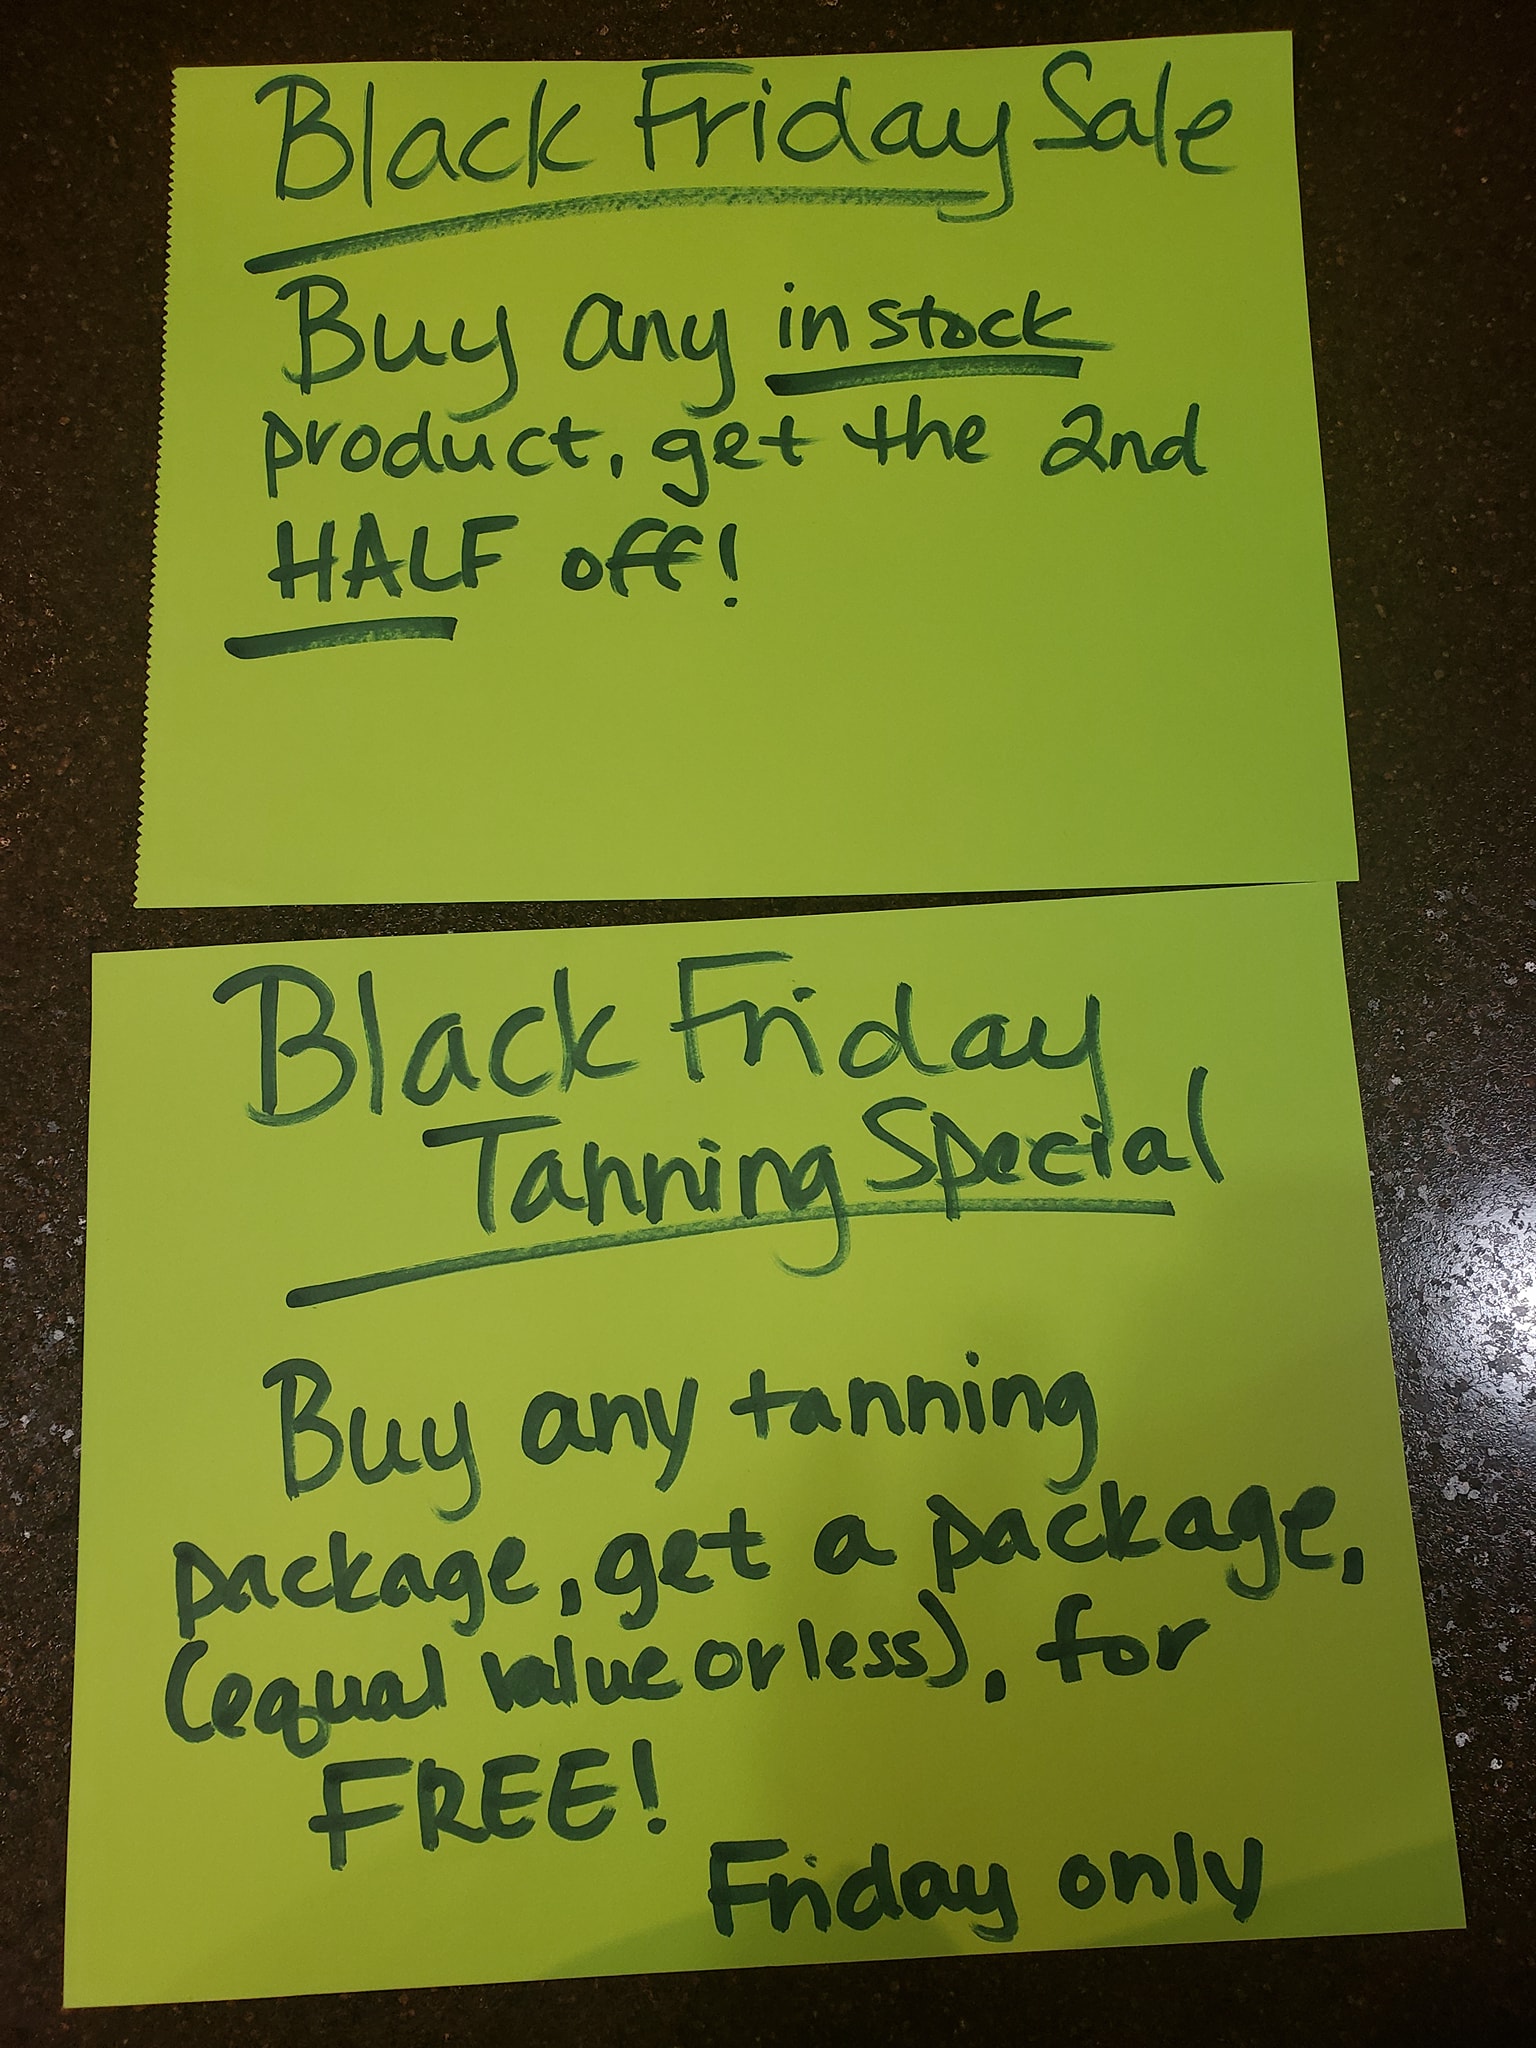 Black Friday Sale
Buy any in stock
product, get the 2nd
HALF off!
Black Friday
Tanning Special
Buy any tanning
package, get a package,
(equal value or less), for
FREE!
Friday only